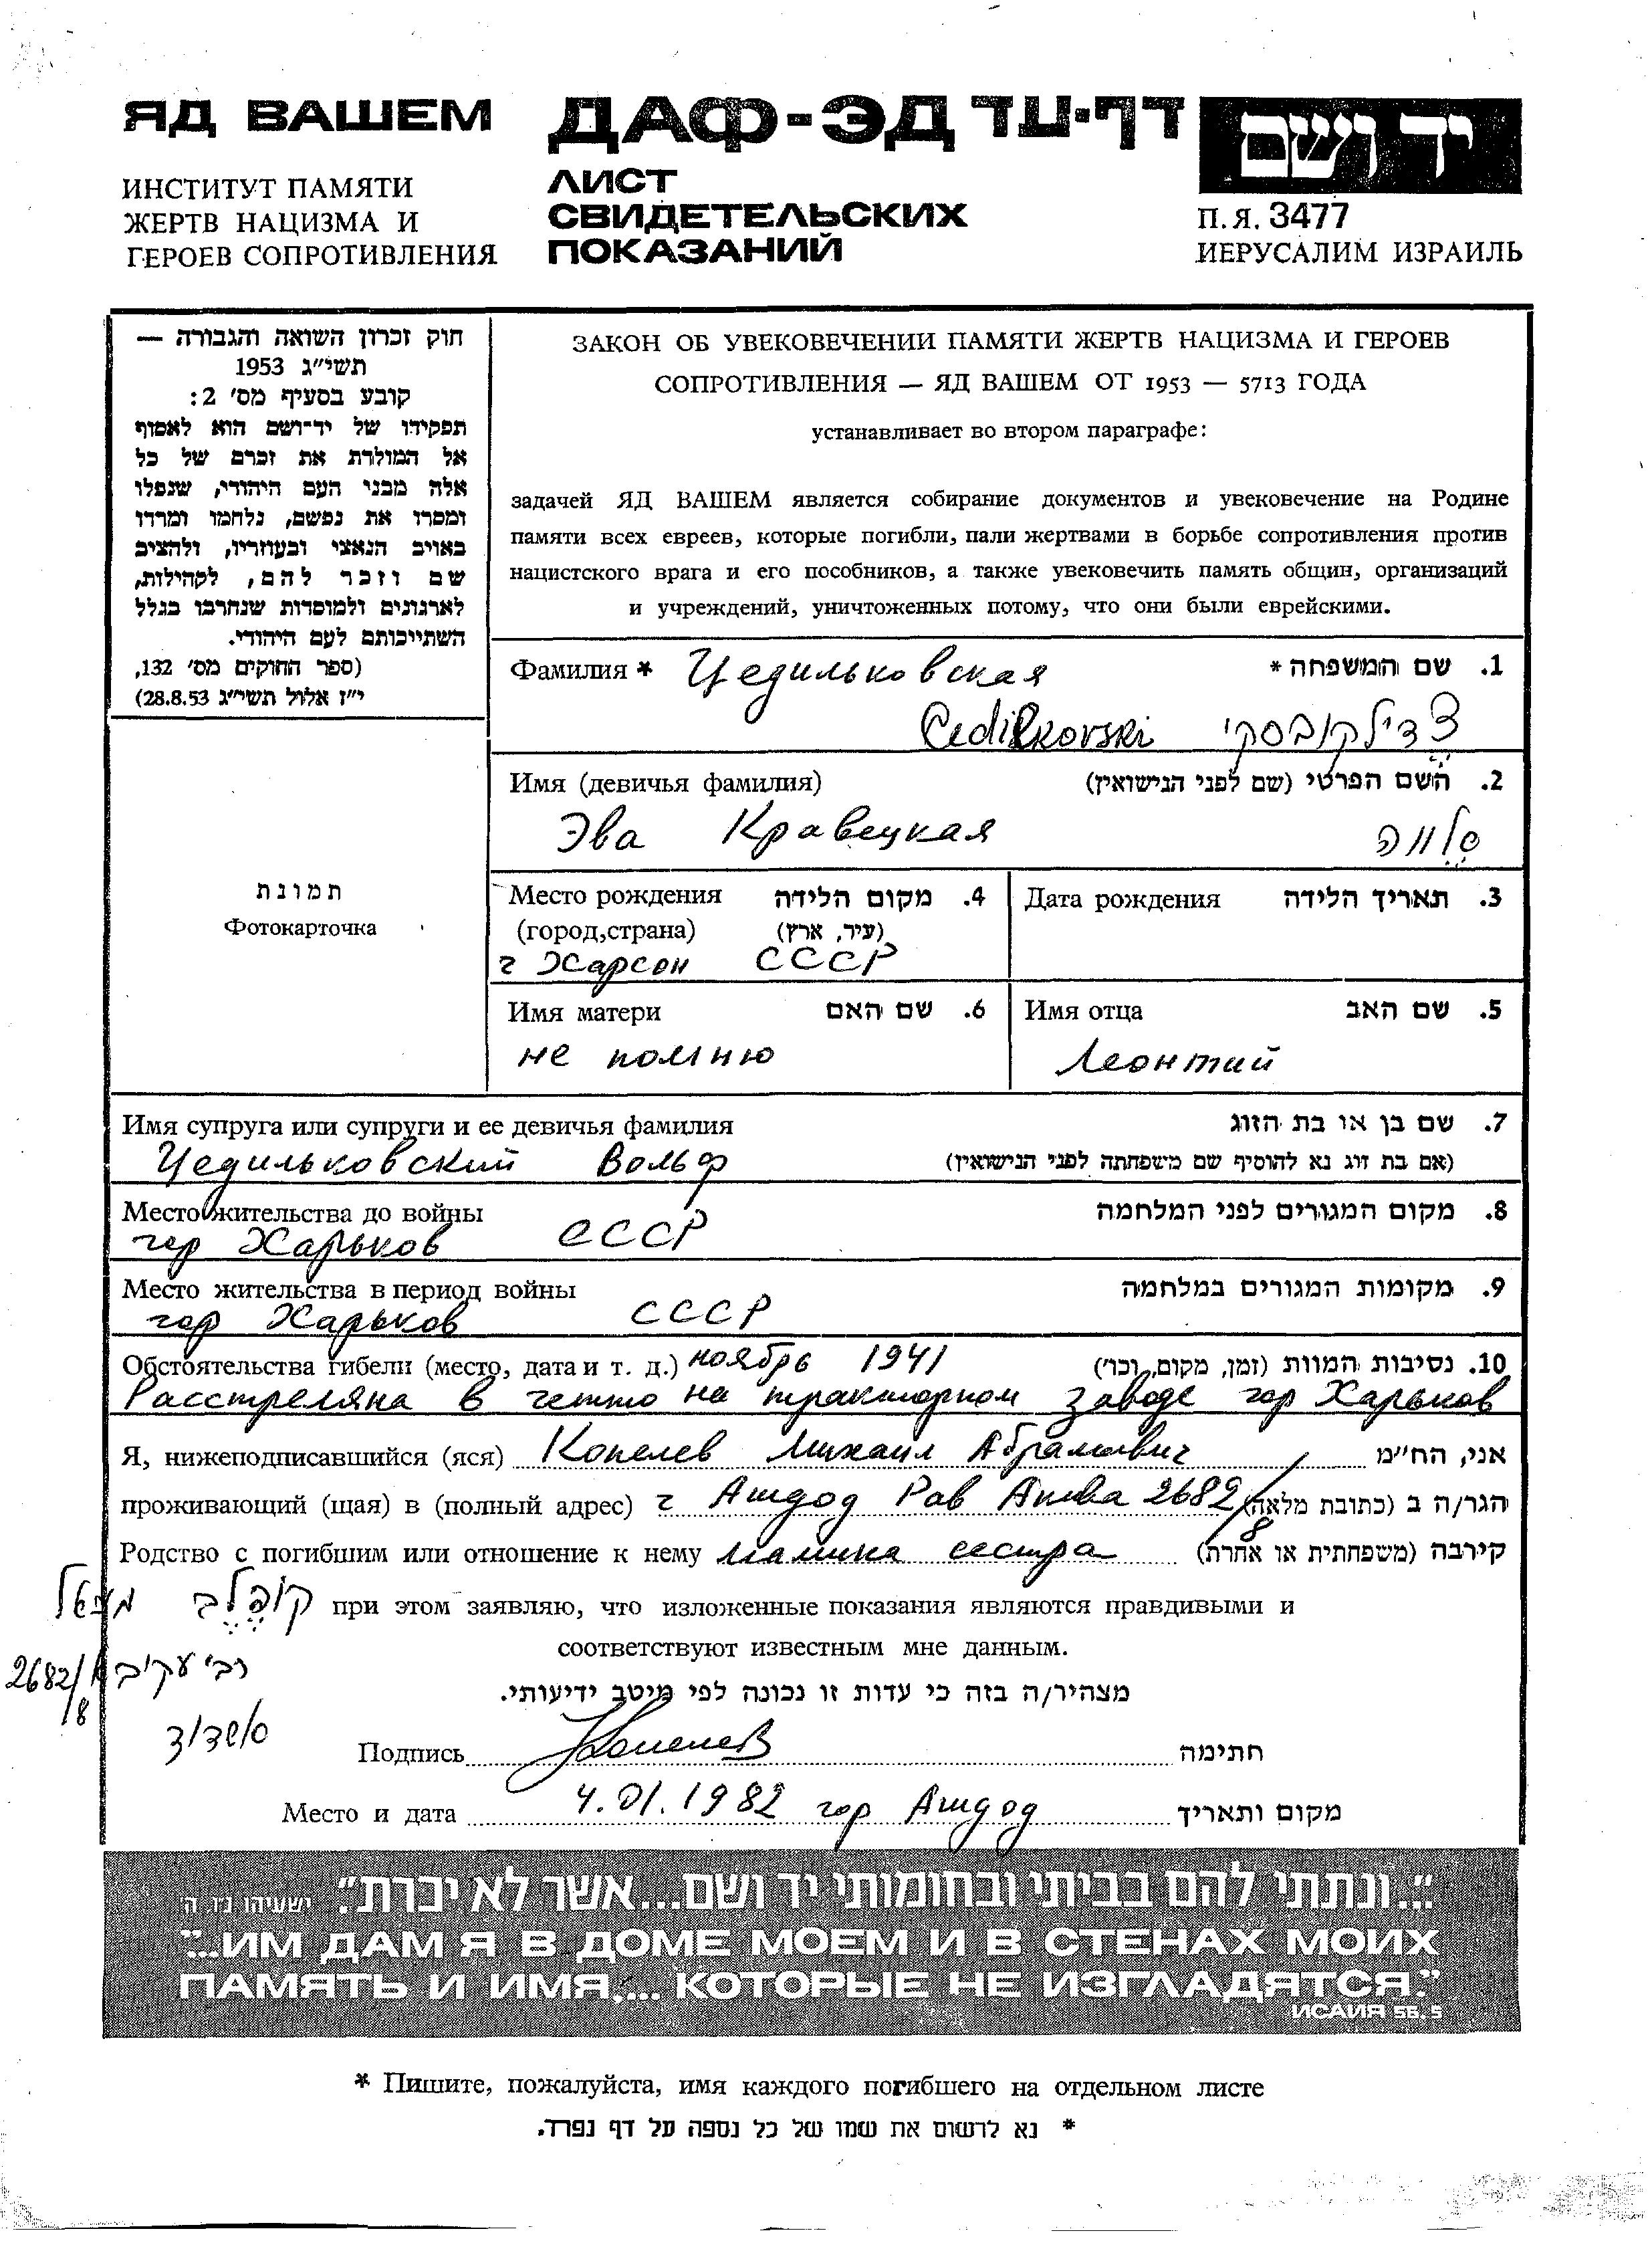 ЯД ВАШЕМ
ИНСТИТУТ ПАМЯТИ
ЖЕРТВ НАЦИЗМА И
ГЕРОЕВ СОПРОТИВЛЕНИЯ
ДАФ-ЭД דף-עד
ЛИСТ
СВИДЕТЕЛЬСКИХ
ПОКАЗАНИЙ
יד ושם
П.Я. 3477
ИЕРУСАЛИМ ИЗРАИЛЬ
חוק זכרון השואה והגבורה —
תשי״ג 1953
קובע בסעיף מס׳ 2:
תפקידו של יד־ושם הוא לאסוף
אל המולדת את זכרם של כל
אלה מבני העם היהודי, שנפלו
ומסרו את נפשם, נלחמו ומרדו
באויב הנאצי ובעוזריו, ולהציב
שם וזכר להם, לקהילות,
לארגונים ולמוסדות שנחרבו בגלל
השתייכותם לעם היהודי.
(ספר החוקים מס׳ 132,
י״ז אלול תשי״ג 28.8.53)
ЗАКОН ОБ УВЕКОВЕЧЕНИИ ПАМЯТИ ЖЕРТВ НАЦИЗМА И ГЕРОЕВ
СОПРОТИВЛЕНИЯ — ЯД ВАШЕМ ОТ 1953 — 5713 ГОДА
устанавливает во втором параграфе:
задачей ЯД ВАШЕМ является собирание документов и увековечение на Родине
памяти всех евреев, которые погибли, пали жертвами в борьбе сопротивления против
нацистского врага и его пособников, а также увековечить память общин, организаций
и учреждений, уничтоженных потому, что они были еврейскими.
Фамилия * Цедильковская 1. שם המשפחה *
Cedilkovski צדילקובסקי
Имя (девичья фамилия) 2. השם הפרטי (שם לפני הנישואין)
Эва Кравецкая
תמונת
Фотокарточка
Место рождения 4. מקום הלידה
(город,страна) (עיר, ארץ)
г Харсон СССР
Дата рождения 3. תאריך הלידה
Имя матери 6. שם האם
не помню
Имя отца 5. שם האב
Леонтий
Имя супруга или супруги и ее девичья фамилия 7. שם בן או בת הזוג
Цедильковский Вольф (אם בת זוג נא להוסיף שם משפחתה לפני הנישואין)
Место жительства до войны 8. מקום המגורים לפני המלחמה
гор Харьков СССР
Место жительства в период войны 9. מקומות המגורים במלחמה
гор Харьков СССР
Обстоятельства гибели (место, дата и т. д.) ноябрь 1941 10. נסיבות המוות (זמן, מקום, וכו׳)
Расстреляна в гетто на тракторном заводе гор Харьков
Я, нижеподписавшийся (яся) Копелев Михаил Абрамович אני, הח״מ
проживающий (щая) в (полный адрес) г Ашдод Рав Акива 2682/8 הגר/ה ב (כתובת מלאה)
Родство с погибшим или отношение к нему мамина сестра קירבה (משפחתית או אחרת)
קופלב при этом заявляю, что изложенные показания являются правдивыми и
соответствуют известным мне данным.
רבי עקיבא 2682/8
מצהיר/ה בזה כי עדות זו נכונה לפי מיטב ידיעותי.
אשדוד
Подпись Копелев חתימה
Место и дата 4.01.1982 гор Ашдод מקום ותאריך
״...ונתתי להם בביתי ובחומותי יד ושם...אשר לא יכרת״. ישעיהו נ״ו ה׳
"...ИМ ДАМ Я В ДОМЕ МОЕМ И В СТЕНАХ МОИХ
ПАМЯТЬ И ИМЯ.... КОТОРЫЕ НЕ ИЗГЛАДЯТСЯ."
ИСАИЯ 56.5
* Пишите, пожалуйста, имя каждого погибшего на отдельном листе
* נא לרשום את שמו של כל נספה על דף נפרד.